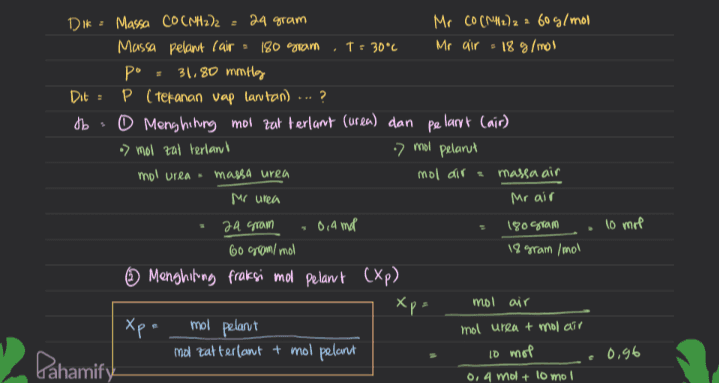 Dik : Massa CO(NH2)2 = 24 gram Mr CO(NH2)2 = 60 g/mol
Massa pelarut (air = 180 gram , T = 30°C Mr air = 18 g/mol
P° = 31,80 mmHg
Dit : P (tekanan uap larutan) ... ?
Jb : ① Menghitung mol zat terlarut (urea) dan pelarut (air)
•> mol zat terlarut •> mol pelarut
mol urea = massa urea mol air = massa air
Mr urea Mr air
= 24 gram = 0,4 mol = 180 gram = 10 mol
60 gram/mol 18 gram/mol
② Menghitung fraksi mol pelarut (Xp)
Xp = mol air
Xp = mol pelarut mol urea + mol air
mol zat terlarut + mol pelarut = 10 mol = 0,96
0,4 mol + 10 mol
Pahamify